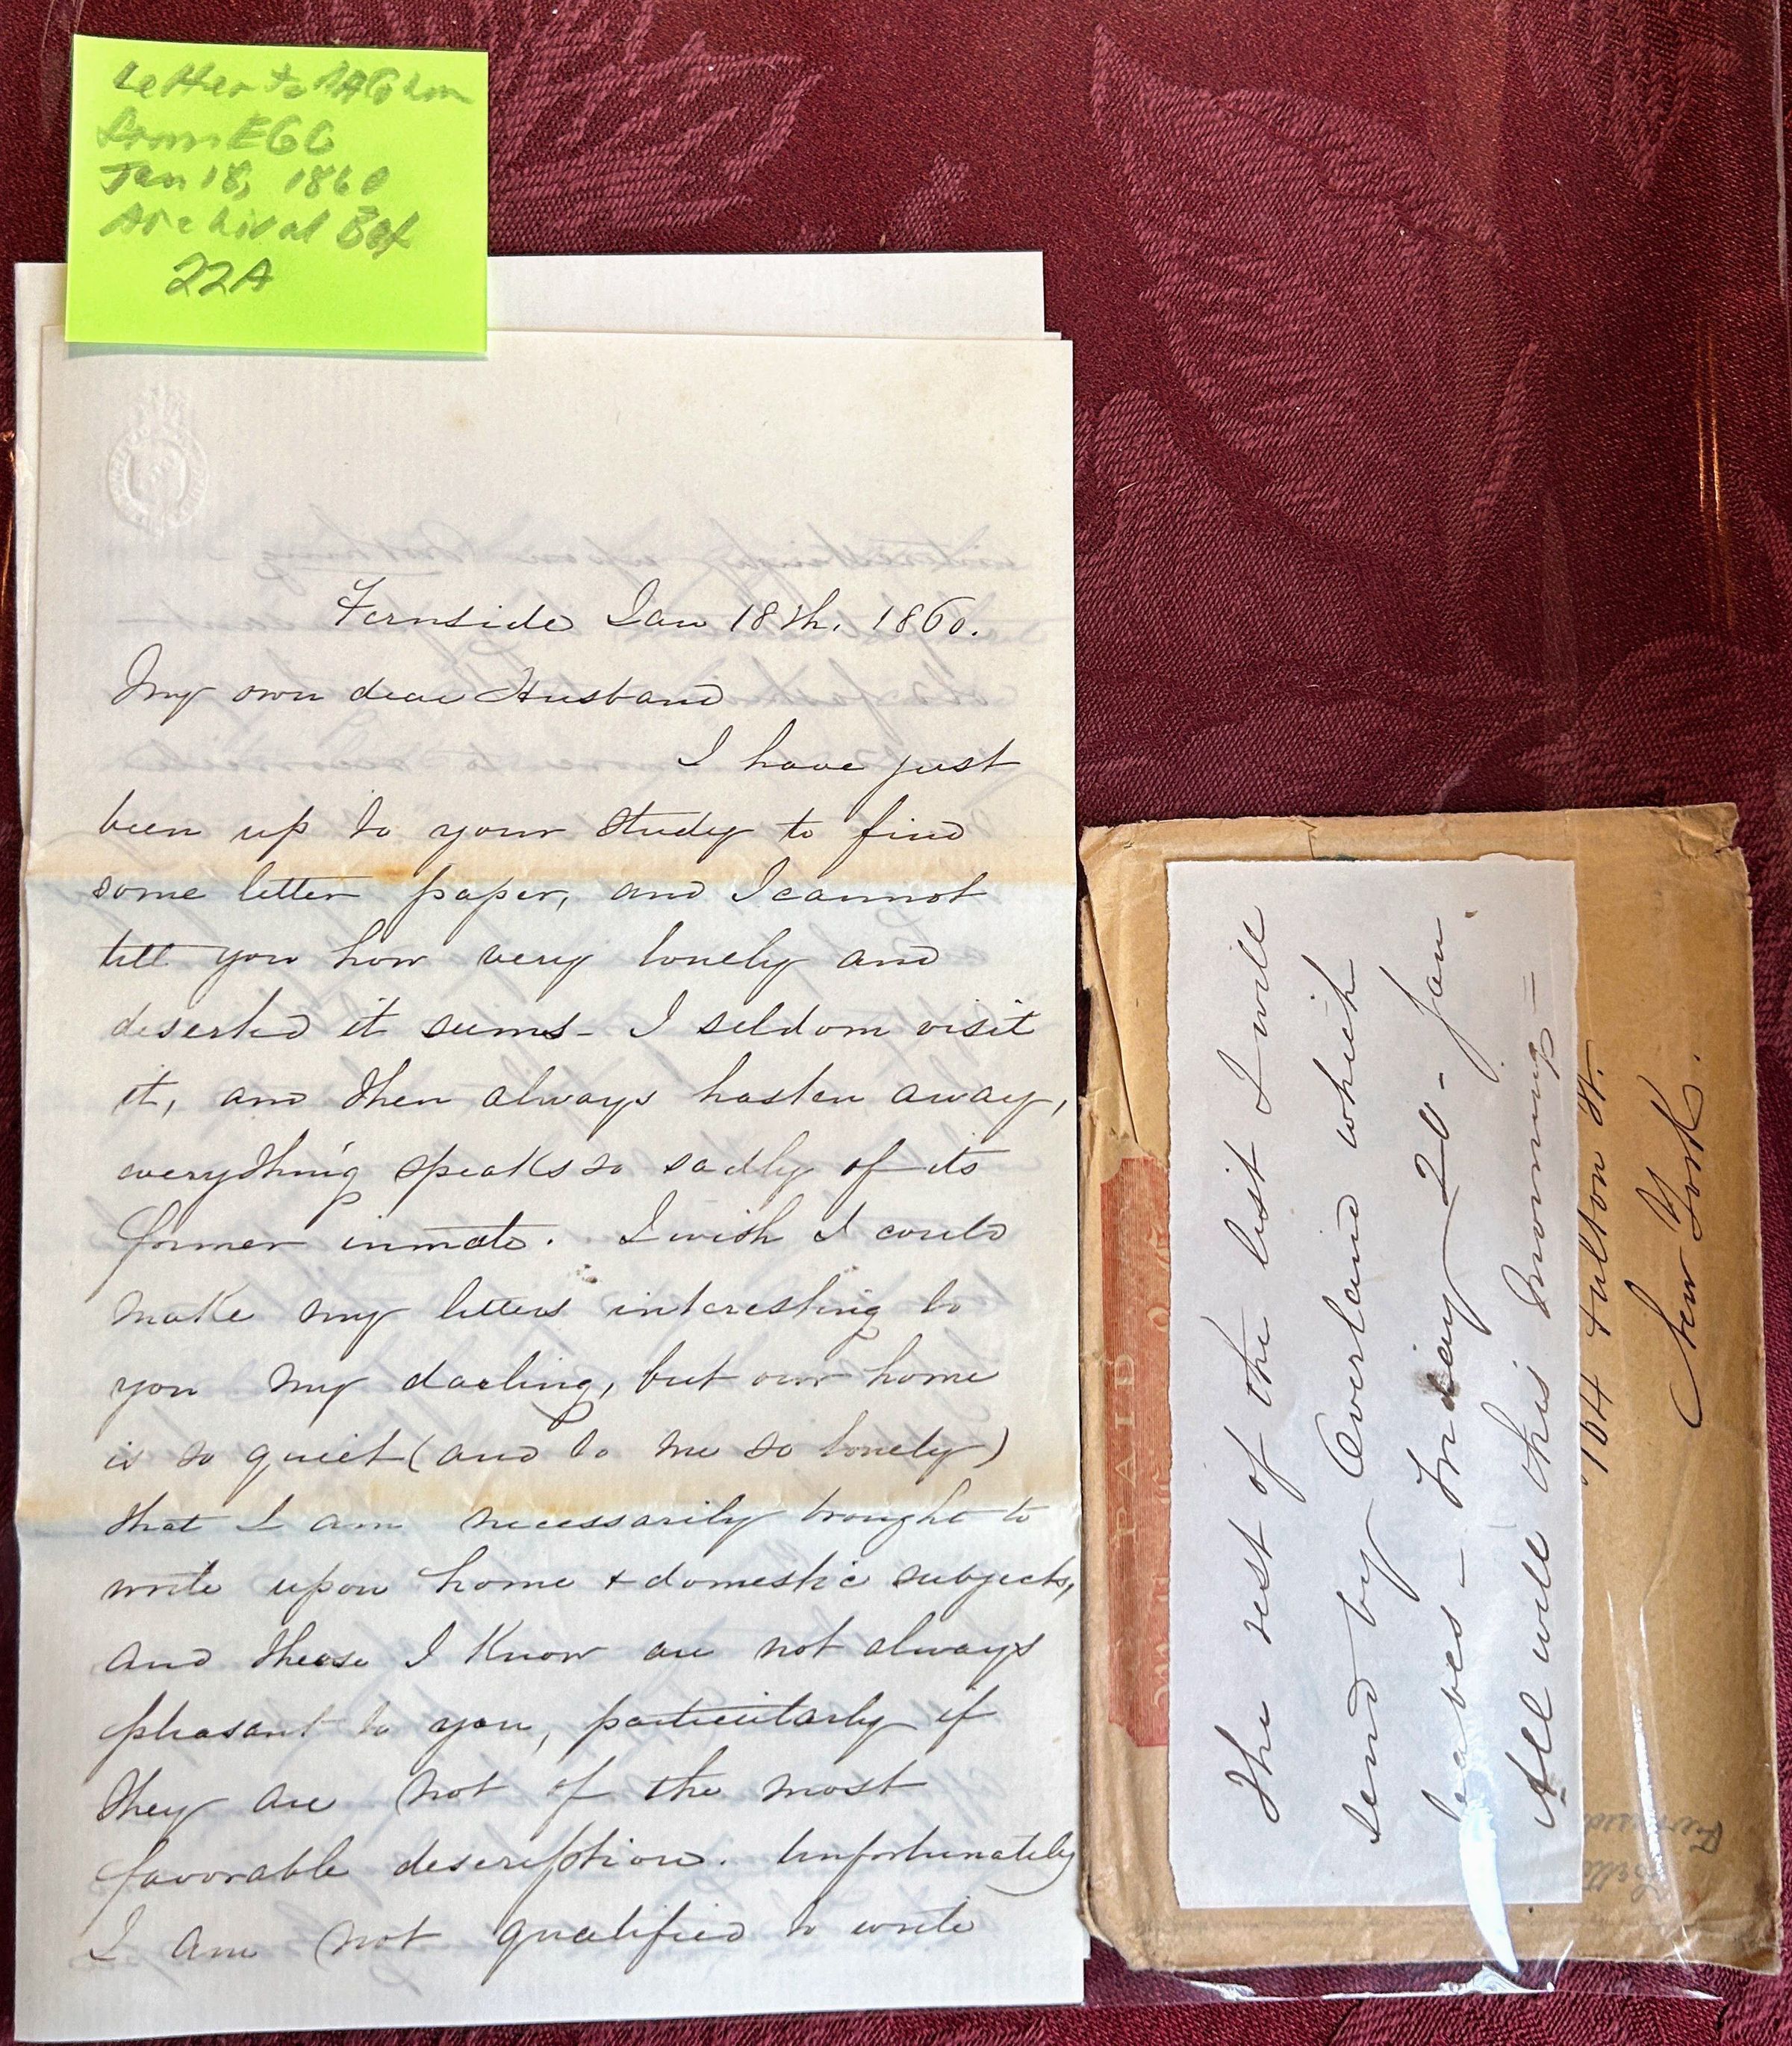 Letter to
from EGC
Jan 18, 1860
Archival Box
22A
Fernside Jan 18th, 1860.
My own dear Husband
I have just
been up to your study to find
some letter paper, and I cannot
tell you how very lonely and
deserted it seems - I seldom visit
it, and then always hasten away,
everything speaks so sadly of its
former inmate. I wish I could
make my letters interesting to
you my darling, but our home
is so quiet (and to me so lonely)
that I am necessarily brought to
write upon home + domestic subjects,
and these I know are not always
pleasant to you, particularly if
they are not of the most
favorable description. Unfortunately
I am not qualified to write
The rest of the list I will
send by Overland which
leaves - Friday 20 - Jan.
All well this morning =
PAID
164 Fulton St.
New York.